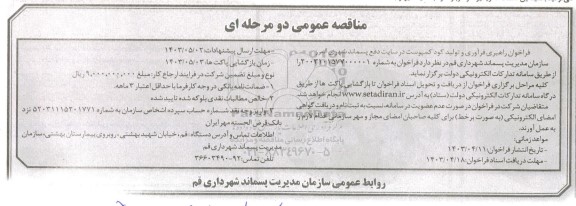 مناقصه عمومی دو مرحله ای
فراخوان راهبری فرآوری و تولید کود کمپوست در سایت دفع پسماند شهری قم
سازمان مدیریت پسماند شهرداری قم در نظر دارد فراخوان به شماره
از طریق سامانه تدارکات الکترونیکی دولت برگزار نماید.
کلیه مراحل برگزاری فراخوان از دریافت و تحویل اسناد فراخوان تا بازگشایی پاکت ها از طریق
درگاه سامانه تدارکات الکترونیکی دولت (ستاد) به آدرس www.setadiran.ir انجام خواهد شد.
متقاضیان شرکت در فراخوان در صورت عدم عضویت در سامانه، نسبت به ثبت نام و دریافت گواهی
امضای الکترونیکی (به صورت برخط) برای کلیه صاحبان امضای مجاز و مهر سازمانی اقدام لازم را
به عمل آورند.
مواعد زمانی:
- تاریخ انتشار فراخوان: ۱۴۰۳/۰۴/۱۱
- مهلت دریافت اسناد فراخوان: ۱۴۰۳/۰۴/۱۸
- مهلت ارسال پیشنهادات: ۱۴۰۳/۰۵/۰۲
- زمان بازگشایی پاکت ها: ۱۴۰۳/۰۵/۰۳
نوع و مبلغ تضمین شرکت در فرایند ارجاع کار: مبلغ ۹،۰۰۰،۰۰۰،۰۰۰ ریال
۱- ضمانت نامه بانکی در وجه کارفرما با حداقل اعتبار ۳ ماهه.
۲- خالص مطالبات نقدی بلوکه شده تایید شده
۳- وجه نقد شماره حساب سپرده اشخاص سازمان به شماره ۵۲۰۳۱۱۱۵۲۰۱۷۷۱ نزد
بانک قرض الحسنه مهر ایران
اطلاعات تماس و آدرس دستگاه: قم، خیابان شهید بهشتی، روبروی بیمارستان بهشتی، سازمان
مدیریت پسماند شهرداری قم
تلفن تماس: ۹۲-۳۶۶۰۳۴۹۰
روابط عمومی سازمان مدیریت پسماند شهرداری قم